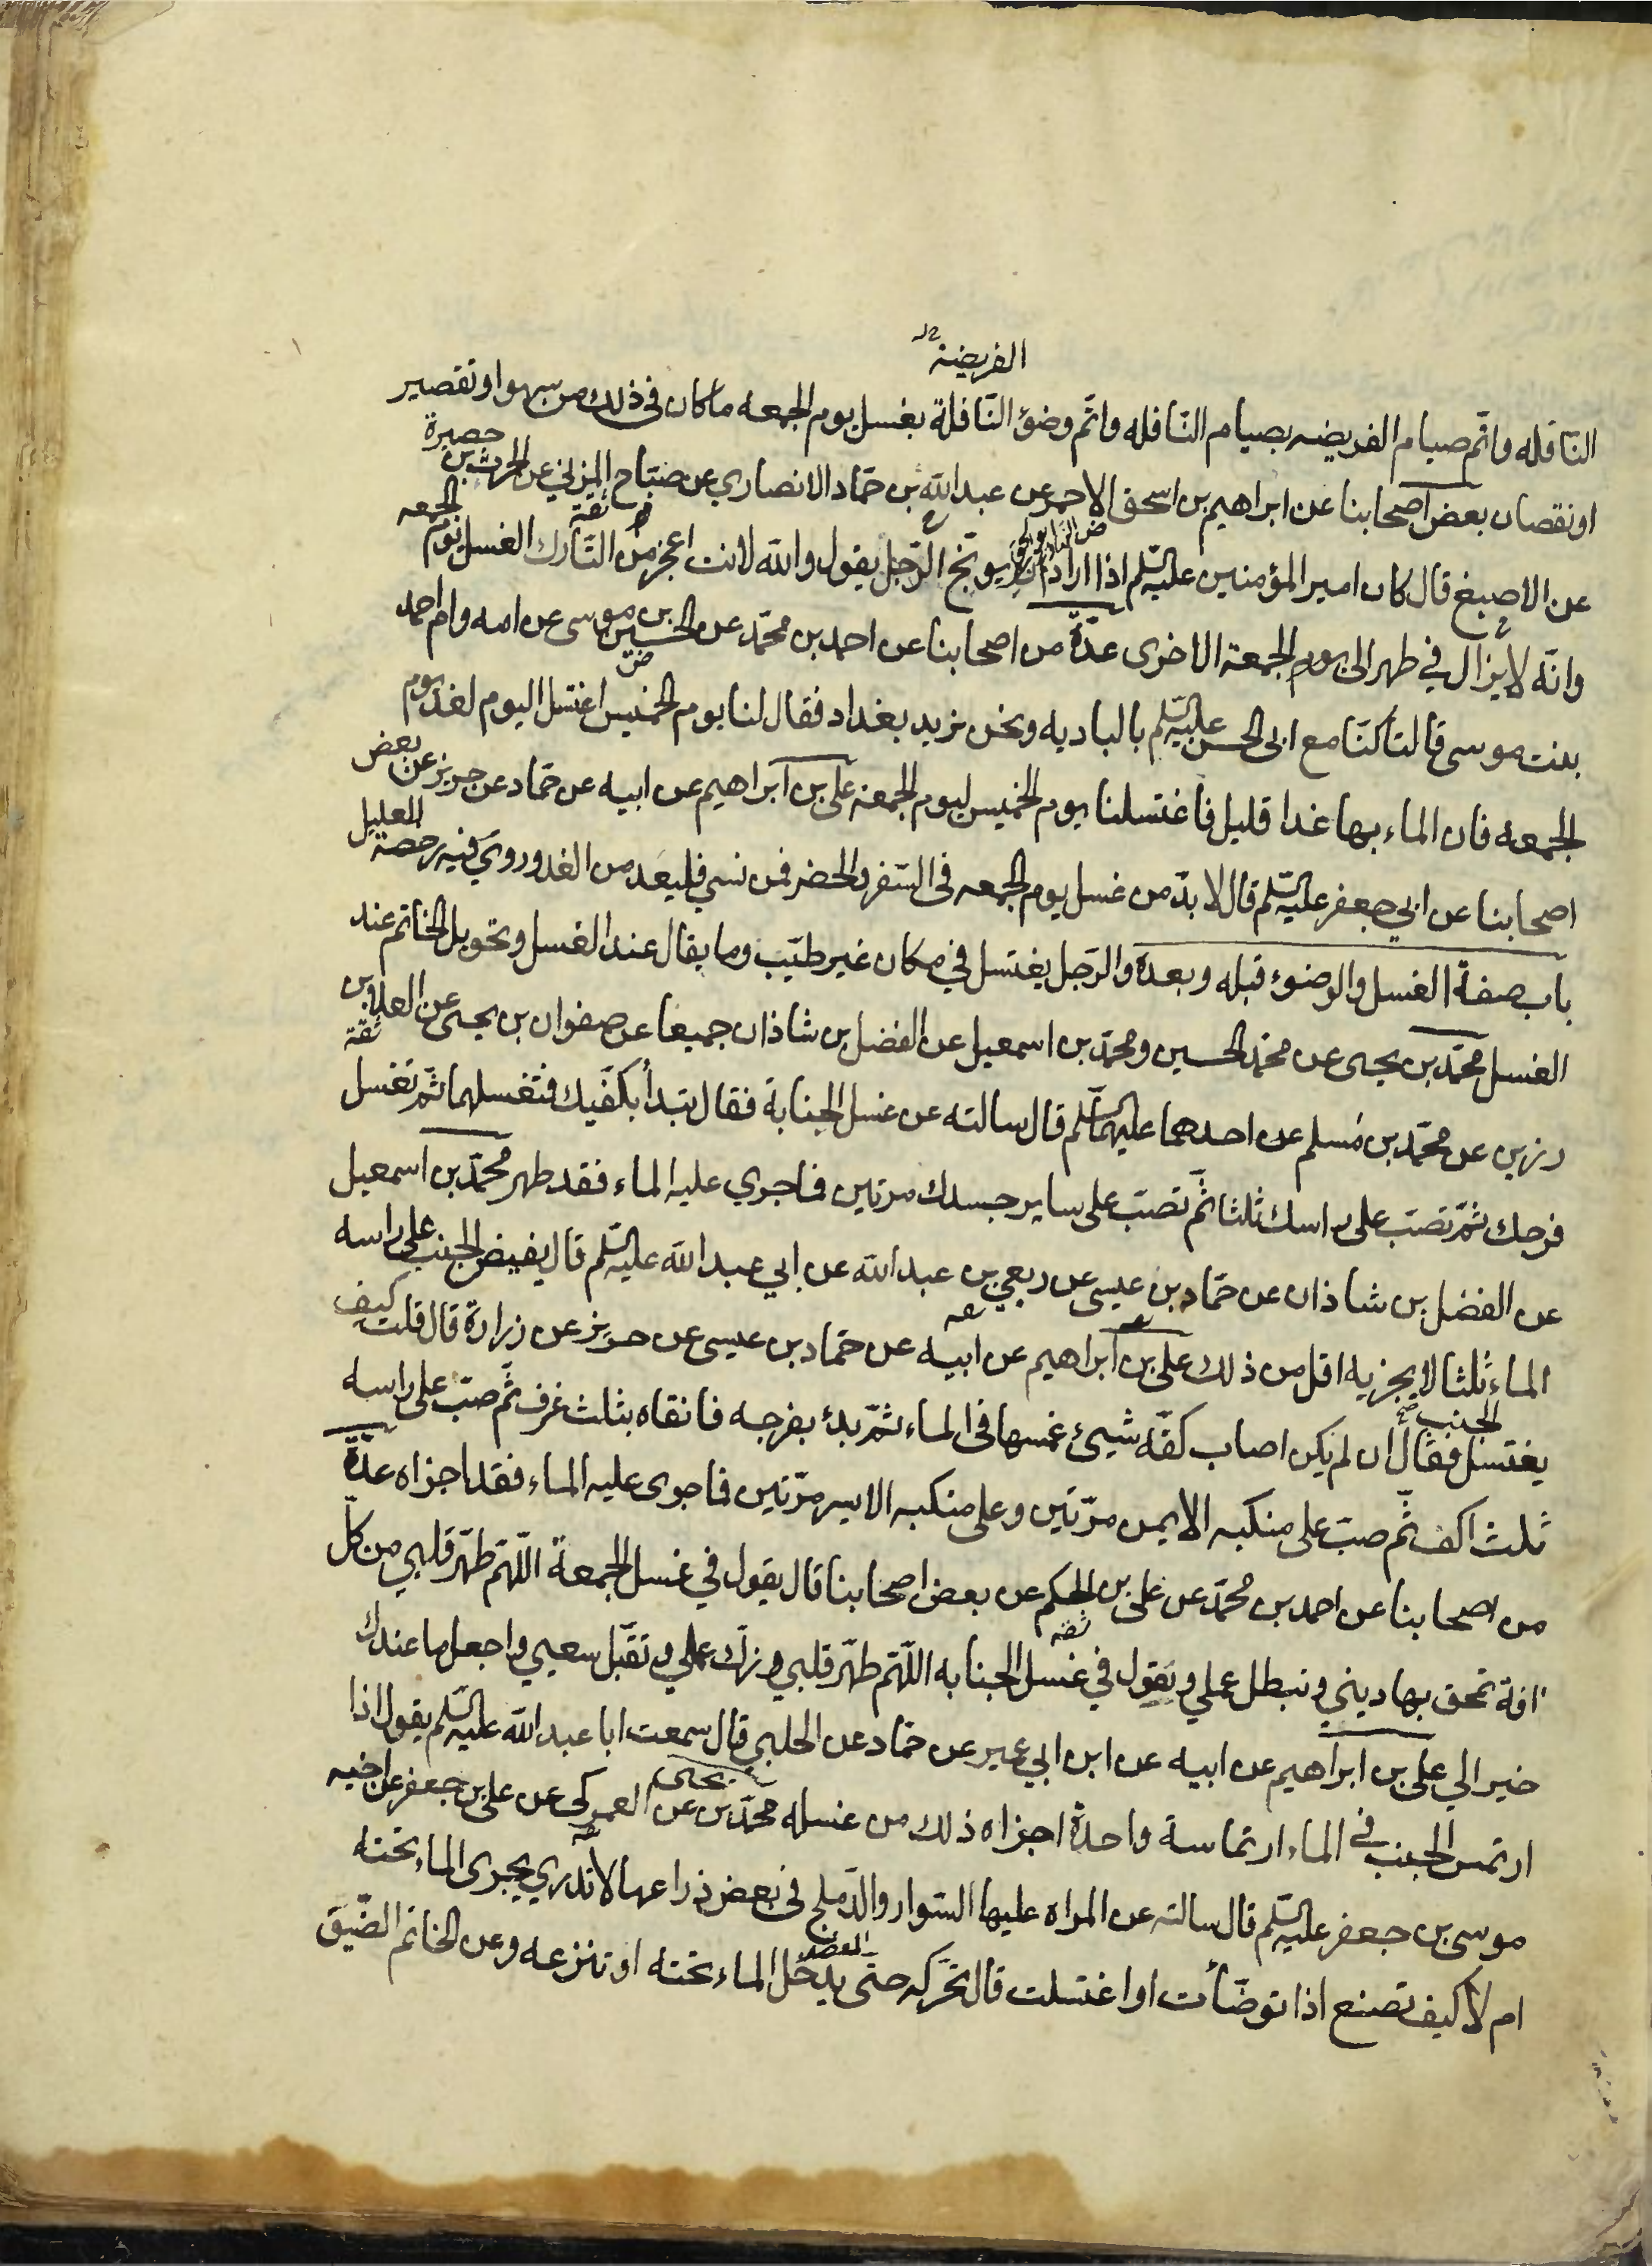 الفريضة
النافله واتم صيام الفريضه بصيام النافله واتم وضؤ النافلة بغسل يوم الجمعه ماكان في ذلك من سهو او تقصير
او نقصان بعض اصحابنا عن ابراهيم بن اسحق الاحمر عن عبد الله بن حماد الانصاري عن صباح المزني عن الحرث بن حصيرة
عن الاصبغ قال كان امير المؤمنين عليه السلم اذا اراد ان يوبخ الرجل يقول والله لانت اعجز من التارك الغسل يوم الجمعه
وانه لا يزال في طهر الى يوم الجمعة الاخرى عدة من اصحابنا عن احمد بن محمد عن الحسين بن موسى عن امه وام احمد
بنت موسى قالتا كنا مع ابي الحسن عليه السلم بالباديه ونحن نريد بغداد فقال لنا يوم الخميس اغتسلا اليوم لغد يوم
الجمعه فان الماء بها غدا قليل فاغتسلنا يوم الخميس ليوم الجمعة علي بن ابراهيم عن ابيه عن حماد عن حريز عن بعض
اصحابنا عن ابي جعفر عليه السلم قال لا بد من غسل يوم الجمعه في السفر والحضر فمن نسي فليعد من الغد وروي فيه رخصة العليل
باب صفة الغسل والوضوء قبله وبعده والرجل يغتسل في مكان غير طيب وما يقال عند الغسل وتحويل الخاتم عند
الغسل محمد بن يحيى عن محمد الحسين ومحمد بن اسمعيل عن الفضل بن شاذان جميعا عن صفوان بن يحيى عن العلا بن
رزين عن محمد بن مسلم عن احدهما عليهما السلم قال سالته عن غسل الجنابة فقال تبدأ بكفيك فتغسلهما ثم تغسل
فرجك ثم تصب على راسك ثلثا ثم تصب على ساير جسدك مرتين فما جري عليه الماء فقد طهر محمد بن اسمعيل
عن الفضل بن شاذان عن حماد بن عيسى عن ربعي بن عبد الله عن ابي عبد الله عليه السلم قال يفيض الجنب على راسه
الماء ثلثا لا يجزيه اقل من ذلك علي بن ابراهيم عن ابيه عن حماد بن عيسى عن حريز عن زرارة قال قلت كيف
يغتسل الجنب فقال ان لم يكن اصاب كفه شيئ غمسها في الماء ثم بدئ بفرجه فانقاه بثلث غرف ثم صب على راسه
ثلث اكف ثم صب على منكبه الايمن مرتين وعلى منكبه الايسر مرتين فما جرى عليه الماء فقد اجزاه عدة
من اصحابنا عن احمد بن محمد عن علي بن الحكم عن بعض اصحابنا قال يقول في غسل الجمعة اللهم طهر قلبي من كل
افة تمحق بها ديني وتبطل عملي ويقول في غسل الجنابه اللهم طهر قلبي وزك عملي وتقبل سعيي واجعل ما عندك
خير الي علي بن ابراهيم عن ابيه عن ابن ابي عمير عن حماد عن الحلبي قال سمعت ابا عبد الله عليه السلم يقول اذا
ارتمس الجنب في الماء ارتماسة واحدة اجزاه ذلك من غسله محمد بن يحيى عن العمركي عن علي بن جعفر عن اخيه
موسى بن جعفر عليه السلم قال سالته عن المراه عليها السوار والدملج في بعض ذراعها لا تدري يجرى الماء تحته
ام لا كيف تصنع اذا توضأت او اغتسلت قال تحركه حتى يدخل الماء تحته او تنزعه وعن الخاتم الضيق